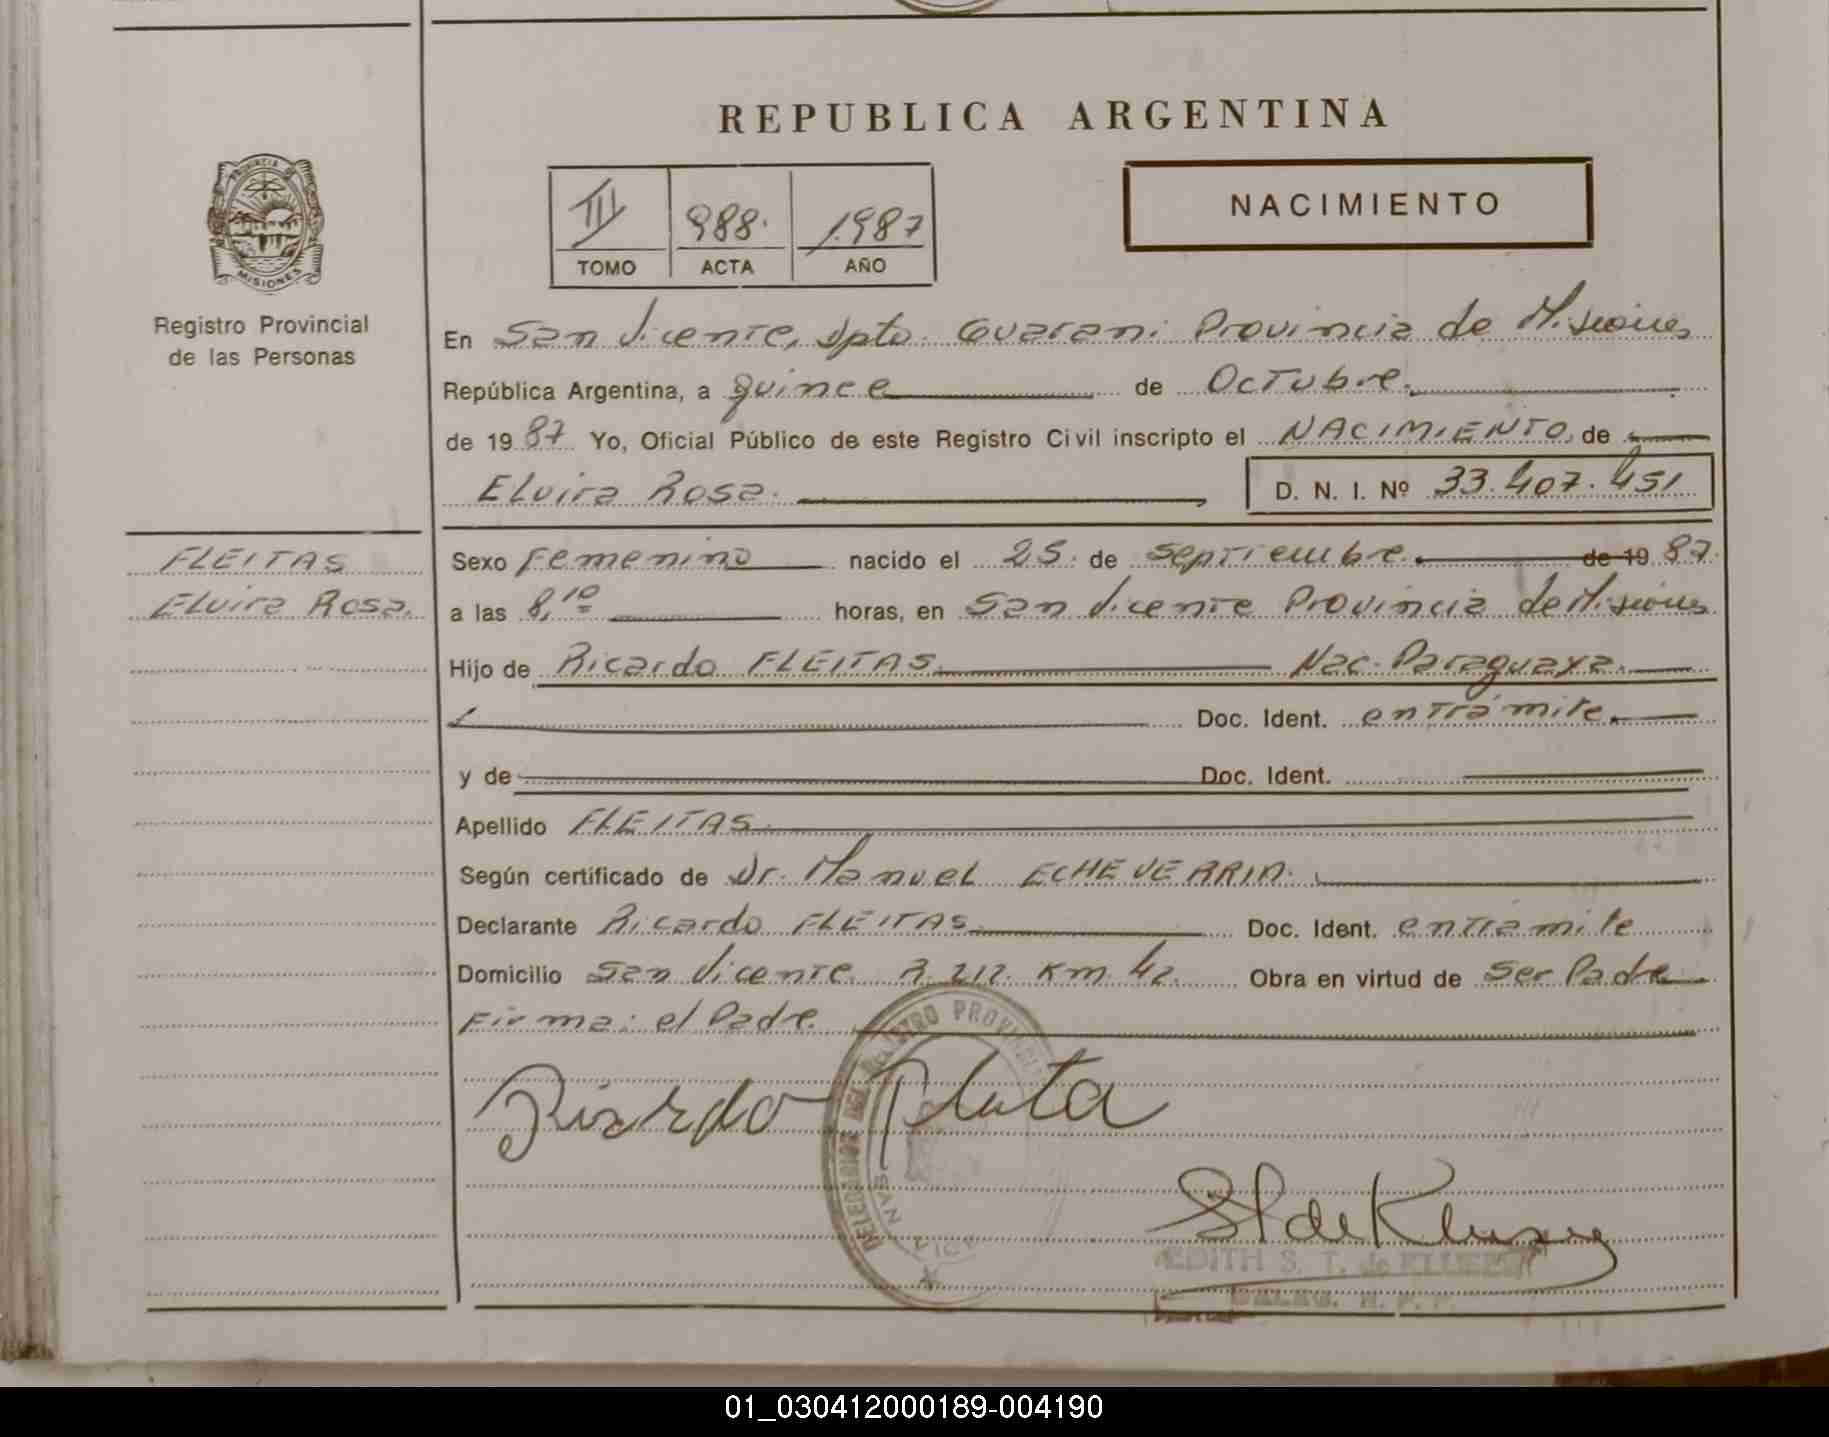 REPUBLICA ARGENTINA
PROVINCIA DE
MISIONES
Registro Provincial
de las Personas
III 988. 1.987
TOMO ACTA AÑO
NACIMIENTO
En San Vicente, Dpto. Guarani Provincia de Misiones
República Argentina, a quince de Octubre.
de 19 87 Yo, Oficial Público de este Registro Civil inscripto el NACIMIENTO, de
Elvira Rosa. D. N. I. Nº 33.407.451
FLEITAS
Elvira Rosa.
Sexo Femenino nacido el 25. de Septiembre. de 19 87.
a las 8,10 horas, en San Vicente Provincia de Misiones
Hijo de Ricardo FLEITAS. Nac. Paraguaya.
Doc. Ident. entramite.
y de Doc. Ident.
Apellido FLEITAS.
Según certificado de Dr. Manuel ECHEVERRIA.
Declarante Ricardo FLEITAS. Doc. Ident. entramite
Domicilio San Vicente. R. 212. Km. 42. Obra en virtud de Ser Padre
Firma: el Padre.
Ricardo
REGISTRO PROVINCIAL
SAN VICE
EDITH S. T. de
01_030412000189-004190